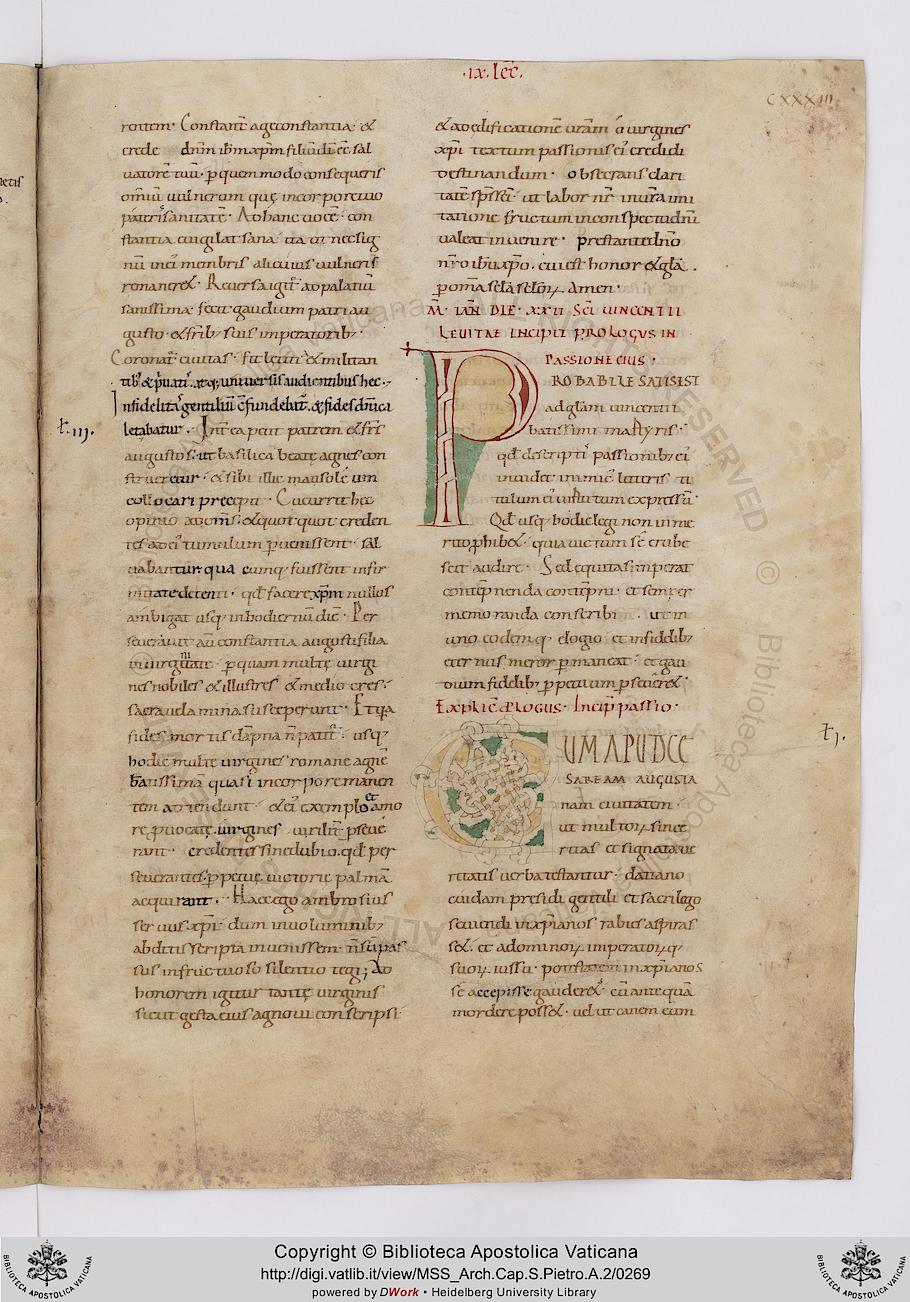 ·ix· lec̄·
CXXXIII
rentem· Constant̄ age constantia· &
crede dn̄m ihm̄ xp̄m filiū di eē sal
uatorē tuū· p quem modo consequeris
omiū uulnerum quę in corpore tuo
pateris sanitatē· Ad hanc uocē· con
stantia euigilat sana· ita ut nec sig
nū in ei membris alicuius uulneris
remaner&· Reuersa igit̄ ad palatiū
sanissima· fecit gaudium patri au
gusto· & frib; suis imperatorib;
Coronat̄ ciuitas· fit lętitia & militan
tib; & puatis· atq; uniuersis audientibus hec·
Infidelitas gentiliū cfundebat̄· & fides dn̄ica
ł· iij·
lętabatur· Int̄ea petit patrem & fr̄s
augustos· ut basilica beatę agnes con
strueretur· & sibi illic mausoleum
collocari precepit· Cucurrit hec
opinio ad om̄s· & quot quot creden
tes ad ei tumulum puenissent· sal
uabantur· qua cumq; fuissent infir
mitate detenti· qd̄ facere xp̄m nullos
ambigat usq; in hodiernū diē· Per
seuerauit aū constantia augusti filia
in uirginitate· p quam multę uirgi
nes nobiles & illustres & medio cres·
sacra uelamina susceperunt· Et quia
fides mortis dampna n̄ patit̄· usq;
hodie multę uirgines romane agnē
bāussimā quasi in corpore manen
tem adtendunt· & ei exemplo et amo
re puocatę· uirgines uirilit̄ pseue
rant· credentes sine dubio· qd̄ per
seuerantes· ppetuę uictorię palmā
acquirant· Haec ego ambrosius
seruus xp̄i· dum in uoluminib;
abditis scripta inuenissem· n̄ sū pas
sus infructuoso silentio tegi; Ad
honorem igitur tantę uirginis
sicut gesta eius agnoui conscripsi
& aedificationē ur̄am o uirgines
xp̄i textum passionis ei credidi
destinandum· obsecrans clari
tatē sps sci· ut labor nr̄ in ur̄a imi
tatione fructum in conspectu dn̄i
ualeat inuenire· prestante dn̄o
nr̄o ihū xp̄o· cui est honor & gla·
p om̄a scla sclor̄· Amen·
M̄· IAN̄ DIE· XXII SC̄I UINCENTII
LEUITAE INCIPIT PROLOGVS IN
PASSIONE EIUS·
PROBABILE SATIS EST
ad glam uincentii
batissimi martyris·
qd̄ descriptis passionib; ei
inuidet inimic; litteris ti
tulum ei uirtutum expressū·
Qd̄ usq; hodie legi non inme
rito phib&· quia uictum se erube
scit audire· Sed equitas imperat
contēp nenda contēpni· et semper
memoranda conscribi ut in
uno eodemq; elogio et infidelib;
eternus meror pmaneat· et gau
dium fidelib; ppetuum pseuer&·
EXPLIC̄ PLOGUS· INCIP̄ PASSIO·
ł j·
CUM APUD CE
SAREAM AUGUSTA
nam ciuitatem·
ut multor̄ since
ritas et signata ue
ritatis uerba testantur· datiano
cuidam presidi gentili et sacrilego
seuiendi in xp̄ianos rabies aspiras
s&· et a dominor̄ imperatorq;
suor̄ iussu· potestatem in xp̄ianos
se accepisse gauder&· eū antequā
morde re poss&· uel ut canem eum
Copyright © Biblioteca Apostolica Vaticana
http://digi.vatlib.it/view/MSS_Arch.Cap.S.Pietro.A.2/0269
powered by DWork • Heidelberg University Library
BIBLIOTECA APOSTOLICA VATICANA
BIBLIOTECA APOSTOLICA VATICANA